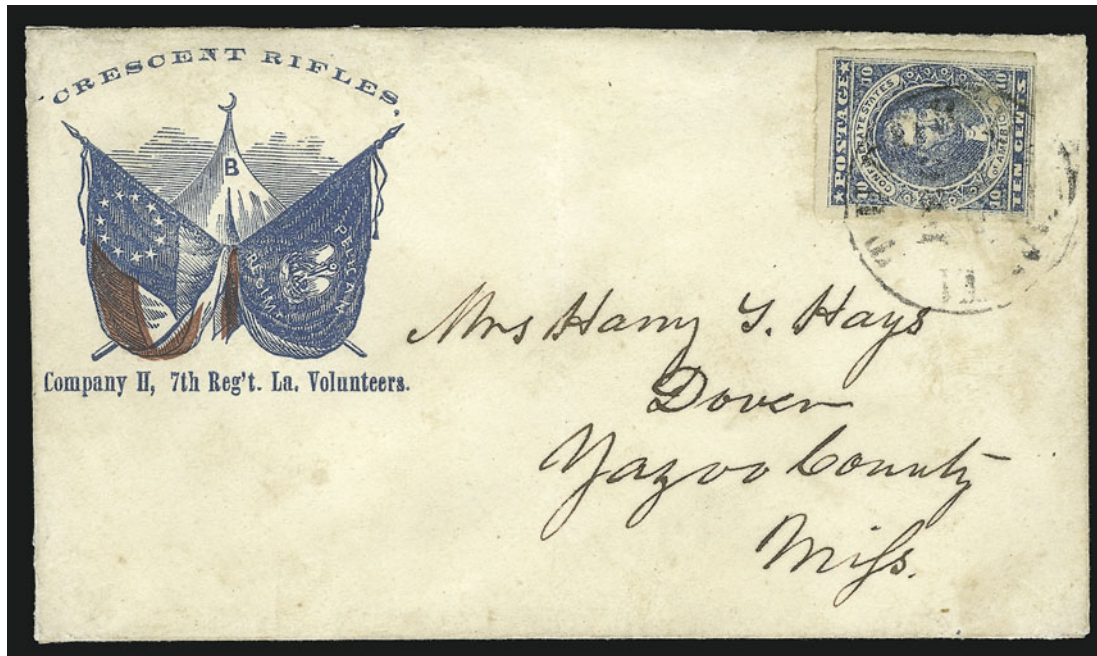 CRESCENT RIFLES.
B
PELICAN
REGIMT
Company H, 7th Reg't. La. Volunteers.
POSTAGE
CONFEDERATE STATES
OF AMERICA
TEN CENTS
10
10
10
10
11
Mrs Harry T. Hays
Dover
Yazoo County
Miss.